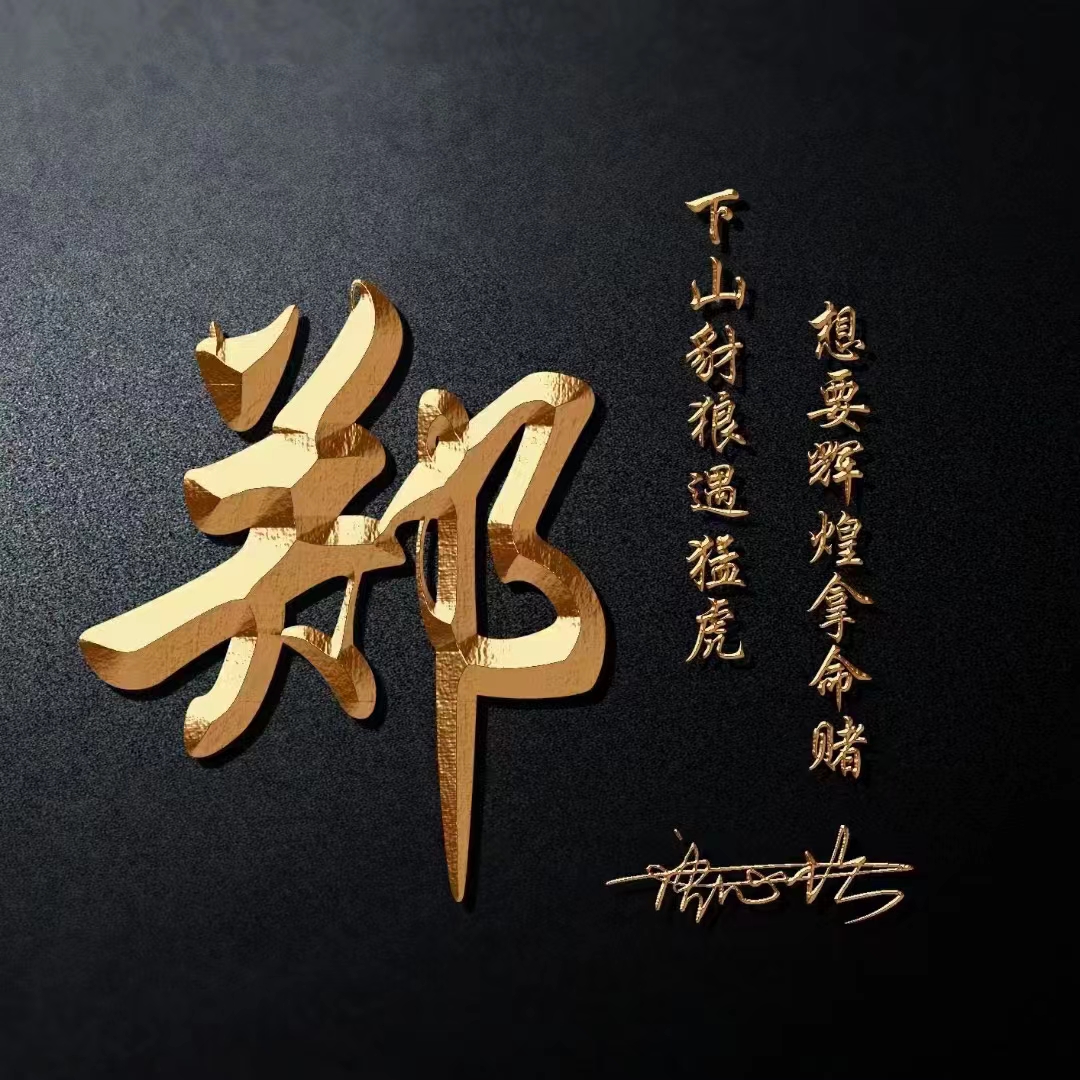 郑
想要辉煌拿命赌
下山豺狼遇猛虎